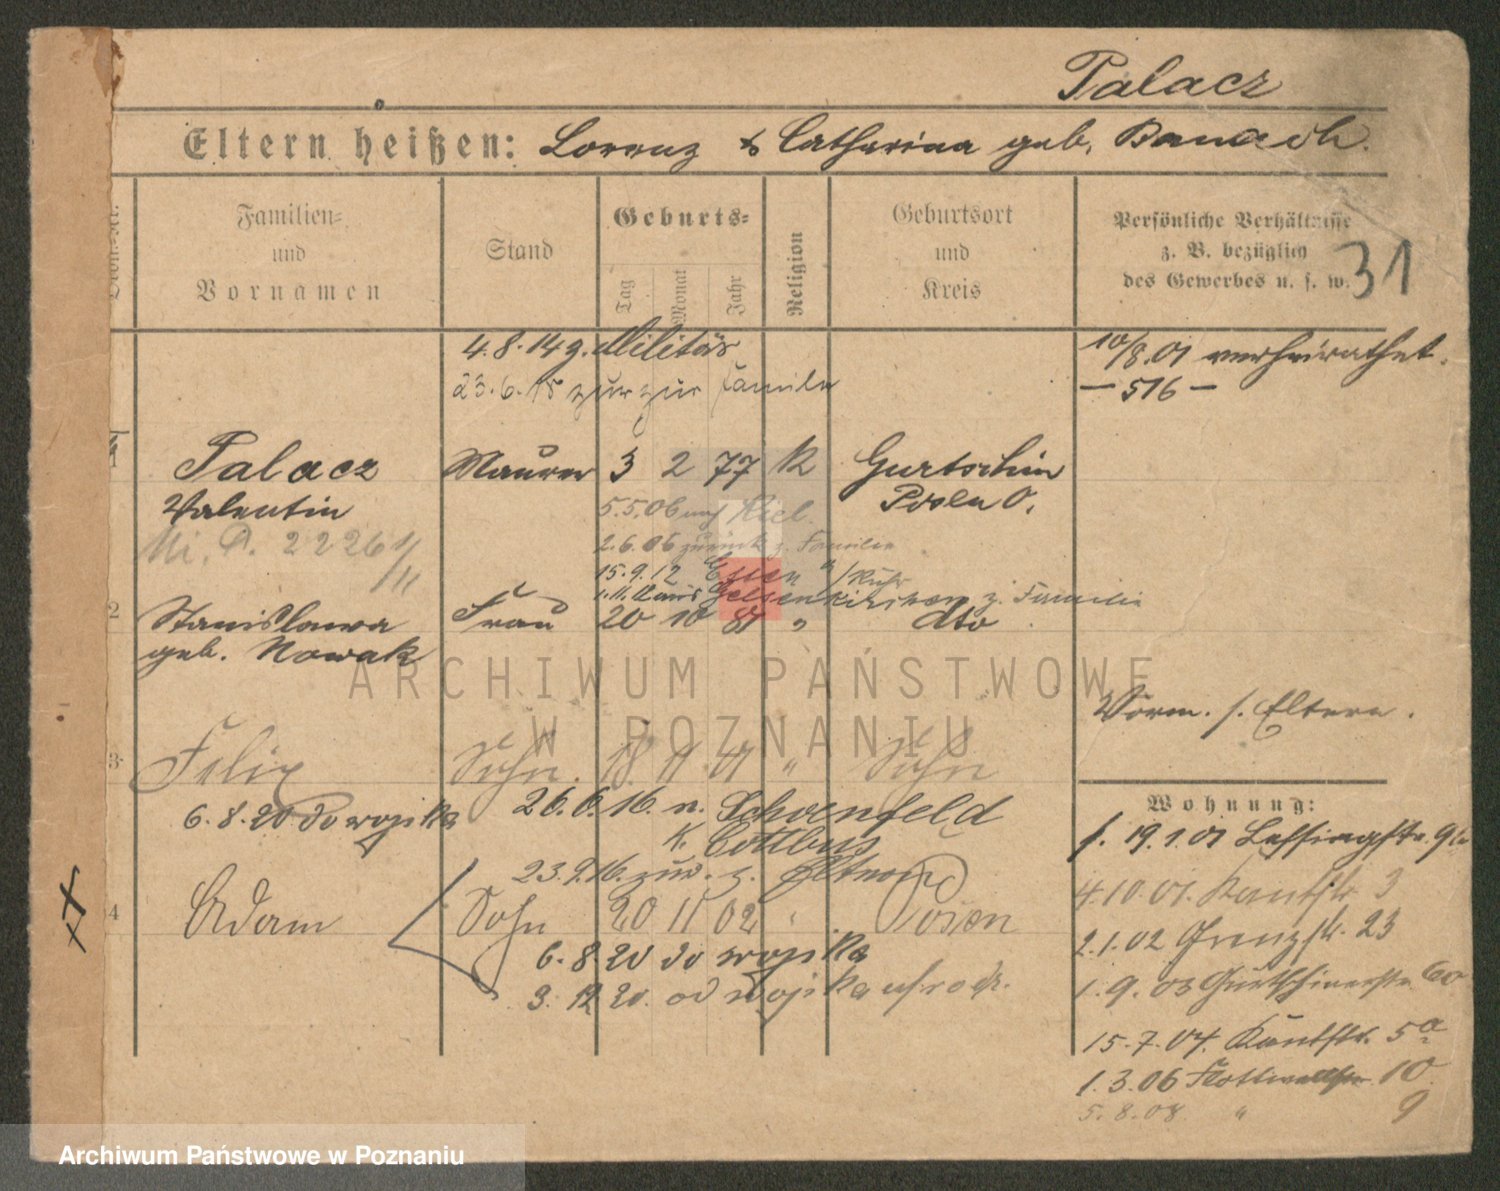 Palacz
Eltern heißen: Lorenz & Catharina geb. Banach.
Familien= und Vornamen
Stand
Geburts=
Tag
Monat
Jahr
Religion
Geburtsort und Kreis
Persönliche Verhältnisse
z. B. bezüglich
des Gewerbes u. s. w.
31
4.8.14 z. Militär
23.6.15 zur zur Familie
10/8.01 verheirathet.
— 516 —
1
Palacz Maurer 3 2 77 K Gurtschin
Valentin Posen O.
5.5.06 nach Kiel
2.6.06 zurück z. Familie
15.9.12 Essen a/Ruhr
Gelsenkirchen z. Familie
2
Stanislawa Frau 20 10 81 " dto
geb. Nowak
Vorm. s. Eltern.
3
Felix Sohn. 18 11 01 " Sohn
6.8.20 do wojska
26.6.16. n. Schoenfeld
K. Cottbus
23.9.16. zur. z.
4
Adam Sohn 20 11 02 " Posen
6.8.20 do wojska
3.12.20. od wojska
Wohnung:
f. 19.1.01 Lessingstr.
4.10.01. Kantstr. 3
2.1.02 Grenzstr. 23
1.9.03 Gurtschinerstr. 60
15.7.04. Kantstr. 5a
1.3.06 Flottwellstr. 10
5.8.08. " 9
XX
ARCHIWUM PAŃSTWOWE
W POZNANIU
Archiwum Państwowe w Poznaniu